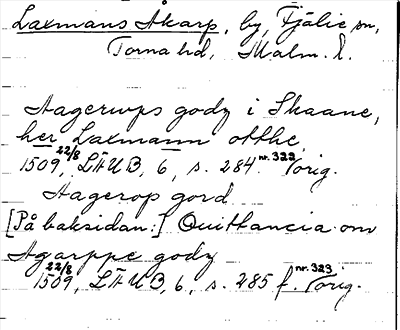 Laxmans Åkarp, by, Fjälie sn,
Torna hd, Malm. l.
Aagerups godz i Skaane,
her Laxmann otthe
1509 22/8, LÄUB, 6, s. 284 nr. 322 Vorig.
Aagerop gord
[På baksidan:] Quittancia om
Agarppe godz
1509 22/8, LÄUB, 6, s. 285 f. nr. 323 Vorig.